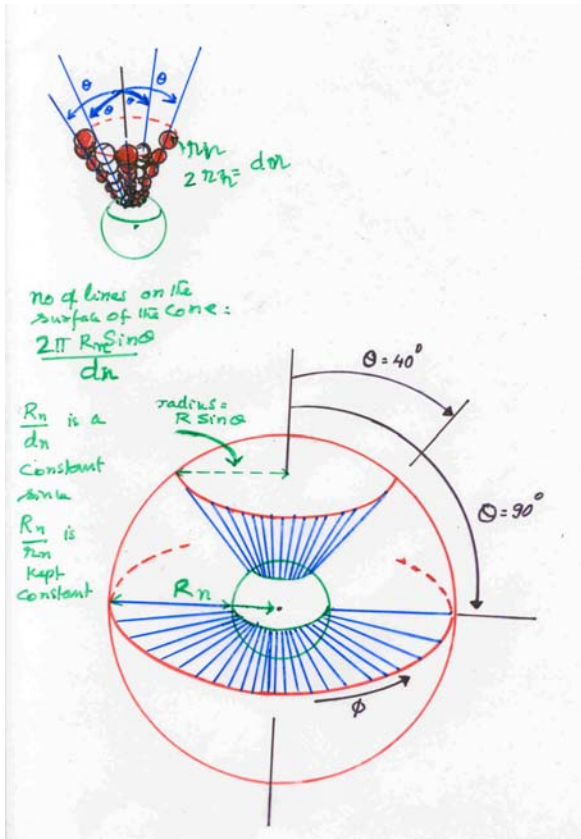 θ θ
θ θ
rn
2 rn = dn
no of lines on the
surface of the cone:
2π Rn Sinθ
dn
Rn is a
dn
constant
since
Rn is
rn
kept
constant
radius =
R Sinθ
θ = 40°
θ = 90°
Rn
φ